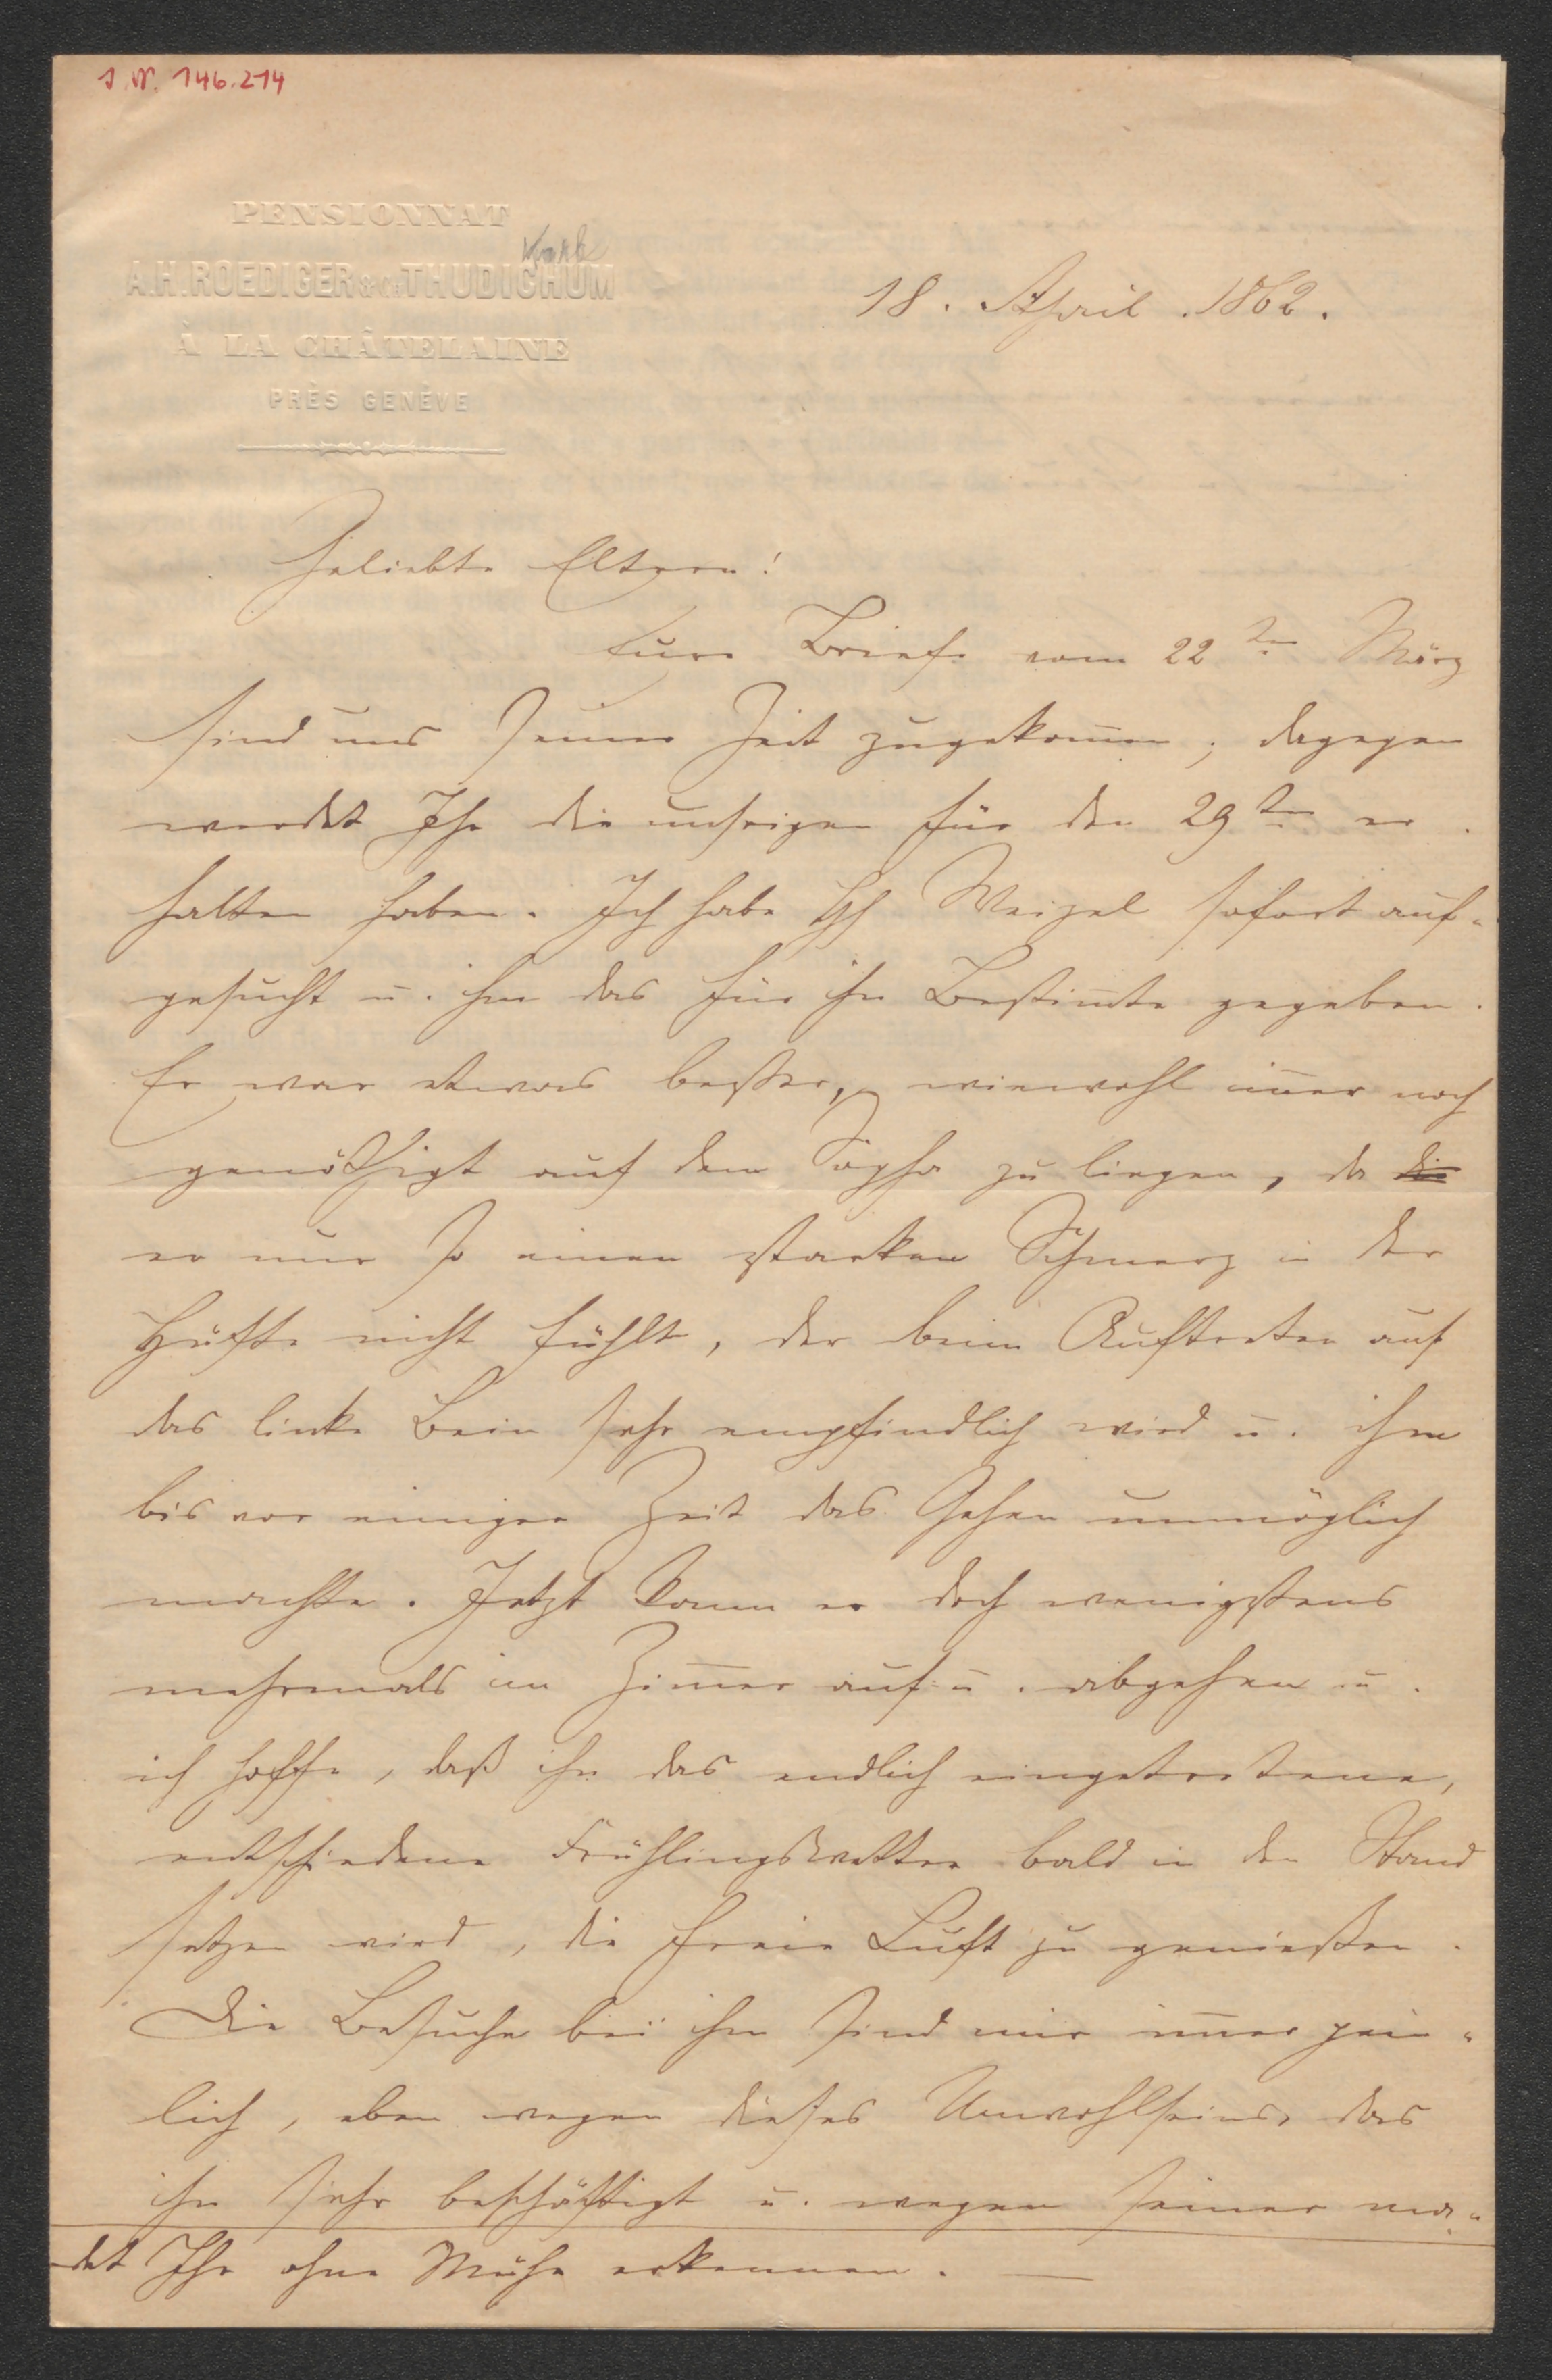 I. N. 146.214
PENSIONNAT
Karl
A.H. ROEDIGER & CH. THUDICHUM
À LA CHÂTELAINE
PRÈS GENÈVE
18. April. 1862.
Geliebte Eltern!
Eure Briefe vom 22ten März
sind uns seiner Zeit zugekom̅en; dagegen
werdet Ihr die unsrigen für den 29ten er-
halten haben. Ich habe Weigel sofort auf-
gesucht u. ihm das für ihn Bestim̅te gegeben.
Er war etwas besser, wiewohl im̅er noch
genöthigt auf dem Sopha zu liegen, da die
er nur so einen starken Schmerz in der
Hüfte nicht fühlt, der beim Auftreten auf
das linke Bein sehr empfindlich wird u. ihm
bis vor einiger Zeit das Gehen unmöglich
machte. Jetzt kann er doch wenigstens
mehrmals im Zim̅er auf u. abgehen u.
ich hoffe, daß ihn das endlich eingetretene,
entschiedene Frühlingswetter bald in den Stand
setzen wird, die freie Luft zu genießen.
Die Besuche bei ihm sind mir im̅er pein-
lich, eben wegen dieses Unwohlseins, das
ihn sehr beschäftigt u. wegen seiner ma-
det Ihr ohne Mühe erkennen. —